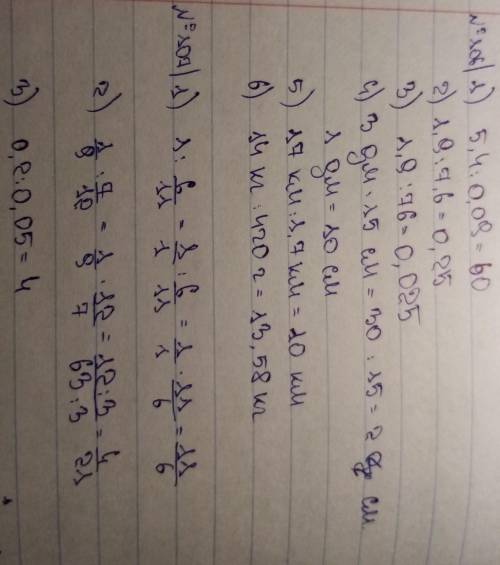 № 108 | 1) 5,4 : 0,09 = 60
2) 1,9 : 7,6 = 0,25
3) 1,9 : 76 = 0,025
4) 3 дм : 15 см = 30 : 15 = 2 см
1 дм = 10 см
5) 17 км : 1,7 км = 10 км
6) 14 кг : 420 г = 13,58 кг
№ 109 | 1) 1 : 6/11 = 1/1 : 6/11 = 1/1 · 11/6 = 11/6
2) 1/9 : 7/12 = 1/9 · 12/7 = 12:3/63:3 = 4/21
3) 0,2 : 0,05 = 4